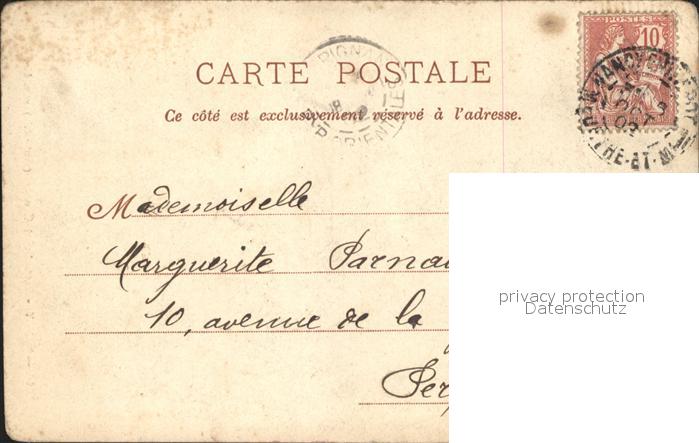 POSTES
10
CARTE POSTALE
Ce côté est exclusivement réservé à l'adresse.
Mademoiselle
Marguerite Parna
10, avenue de la
Per
privacy protection
Datenschutz